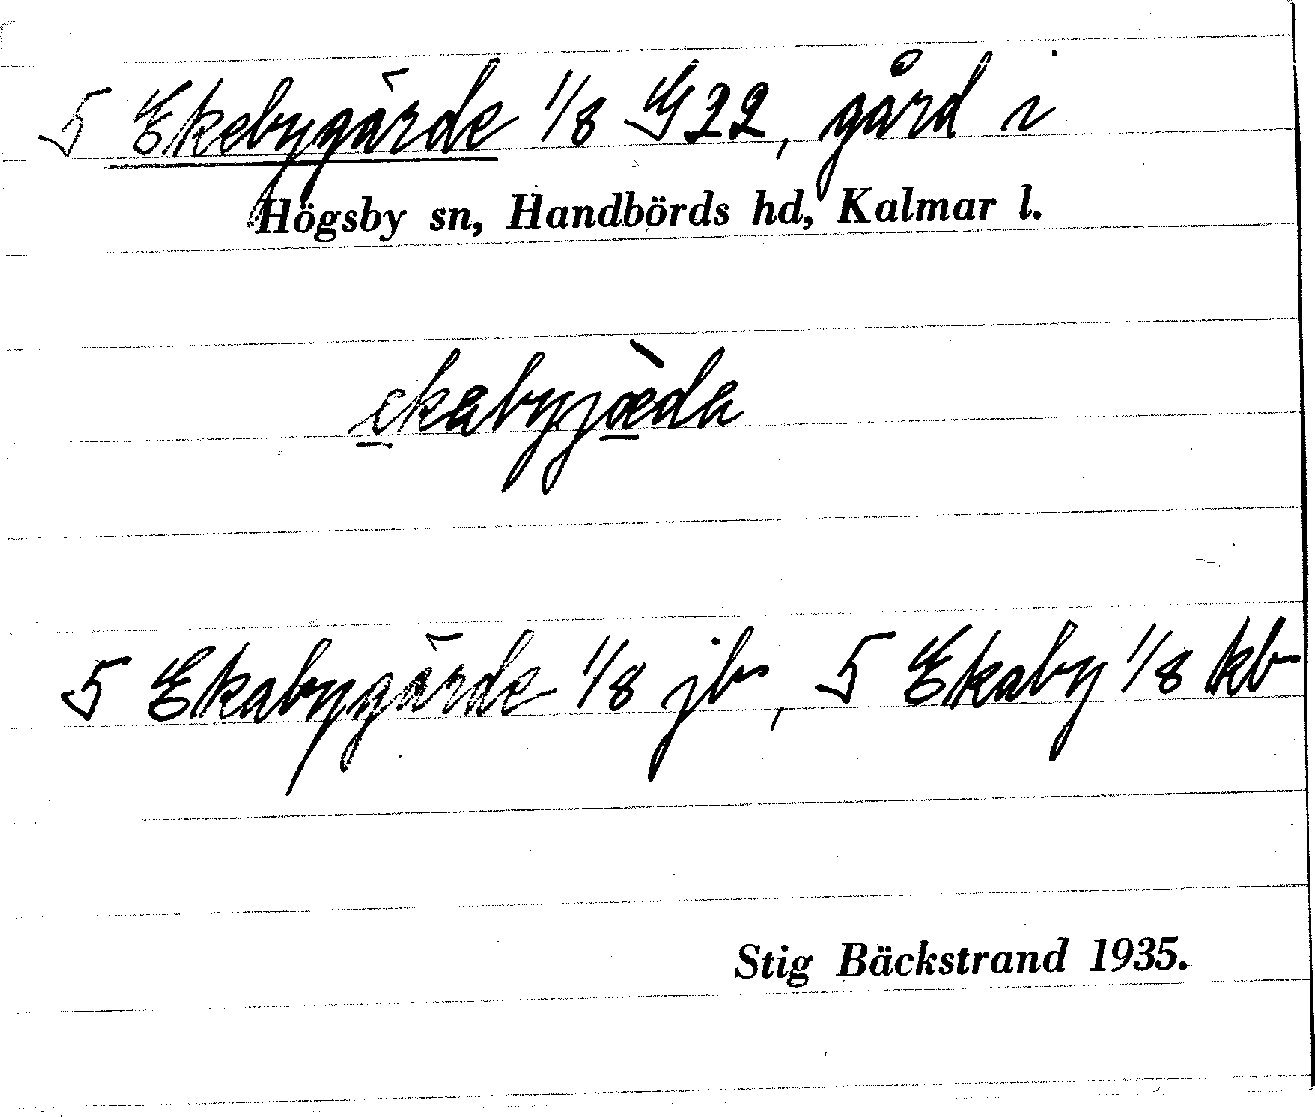 5 Ekebygärde 1/8 G 22, gård i
Högsby sn, Handbörds hd, Kalmar l.
ekabyjæ̀da
5 Ekabygärde 1/8 jb, 5 Ekaby 1/8 kb
Stig Bäckstrand 1935.